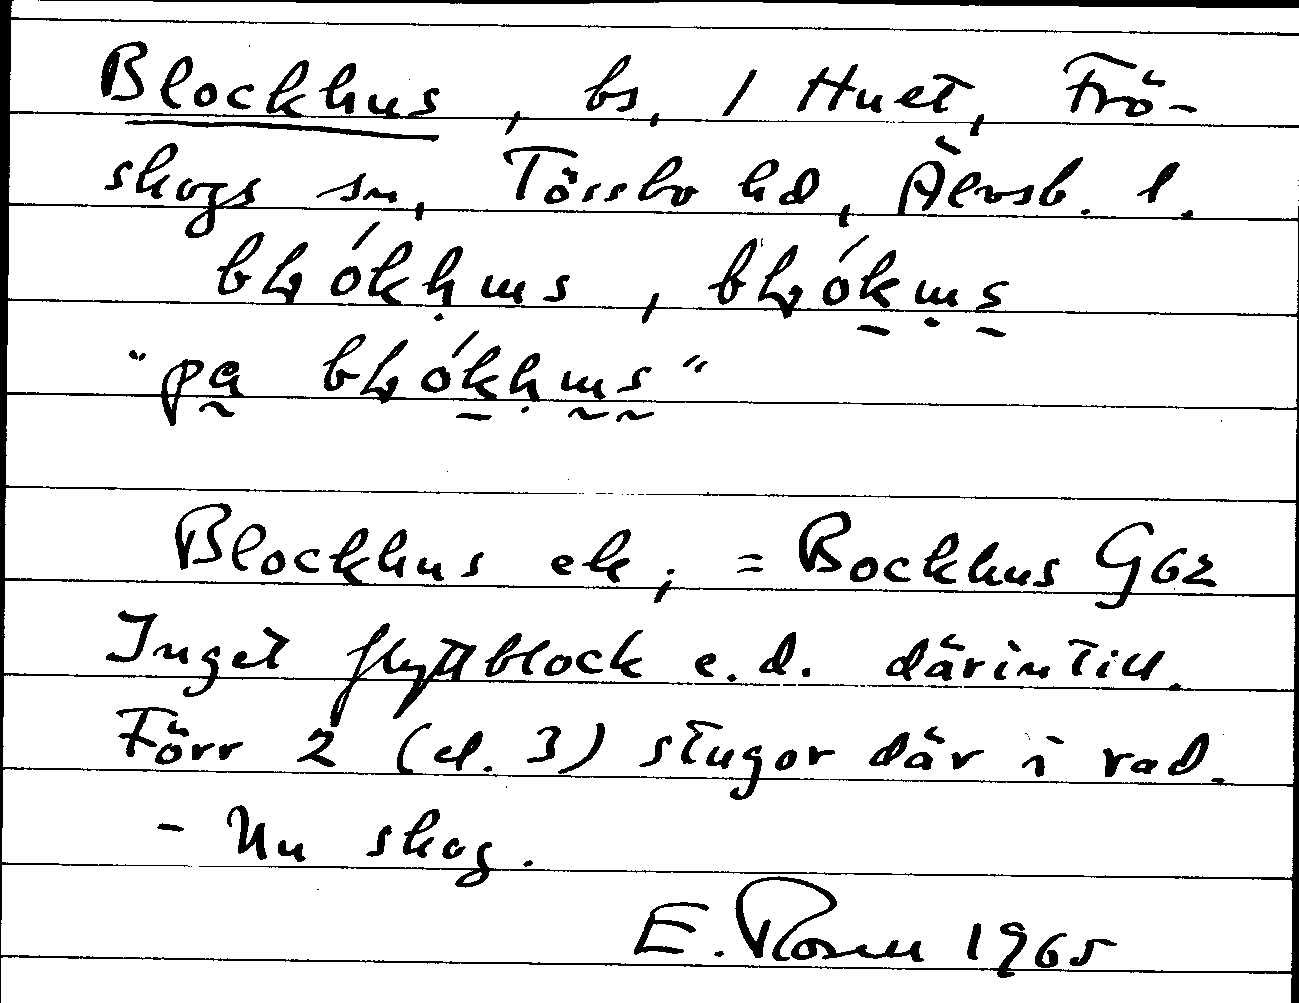 Blockhus, bs, 1 Huet, Frö-
skogs sn, Tössbo hd, Älvsb. l.
"pa
Blockhus ek; = Bockhus G62
Inget flyttblock e.d. därintill.
Förr 2 (el. 3) stugor där i rad.
- Nu skog.
E. Rosell 1965